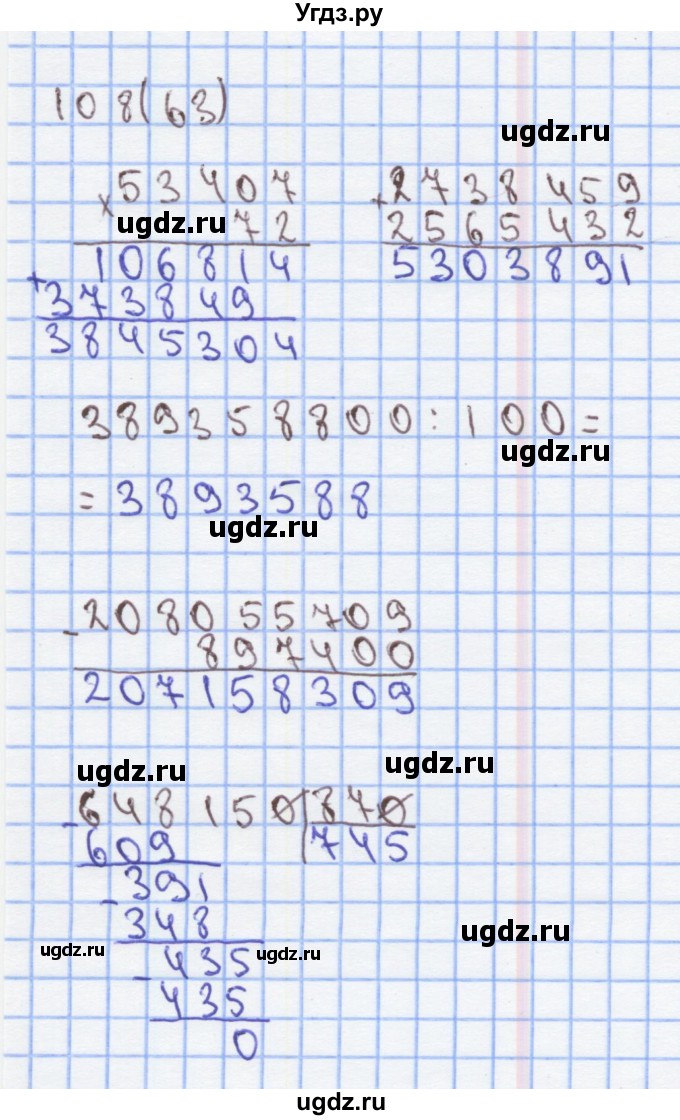 Угдз.ру
108(63)
ugdz.ru
× 53407
72
ugdz.ru
106814
+ 373849
3845304
+ 2738459
2565432
5303891
389358800:100=
ugdz.ru
=3893588
ugdz.ru
- 208055709
897400
207158309
ugdz.ru
ugdz.ru
- 648150 | 870
609 745
- 391
348
ugdz.ru
ugdz.ru
ugdz.ru
- 435
435
0
ugdz.ru